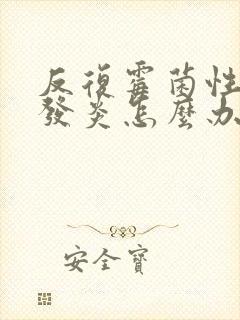 反復霉菌性
發炎怎麼办
安全寶